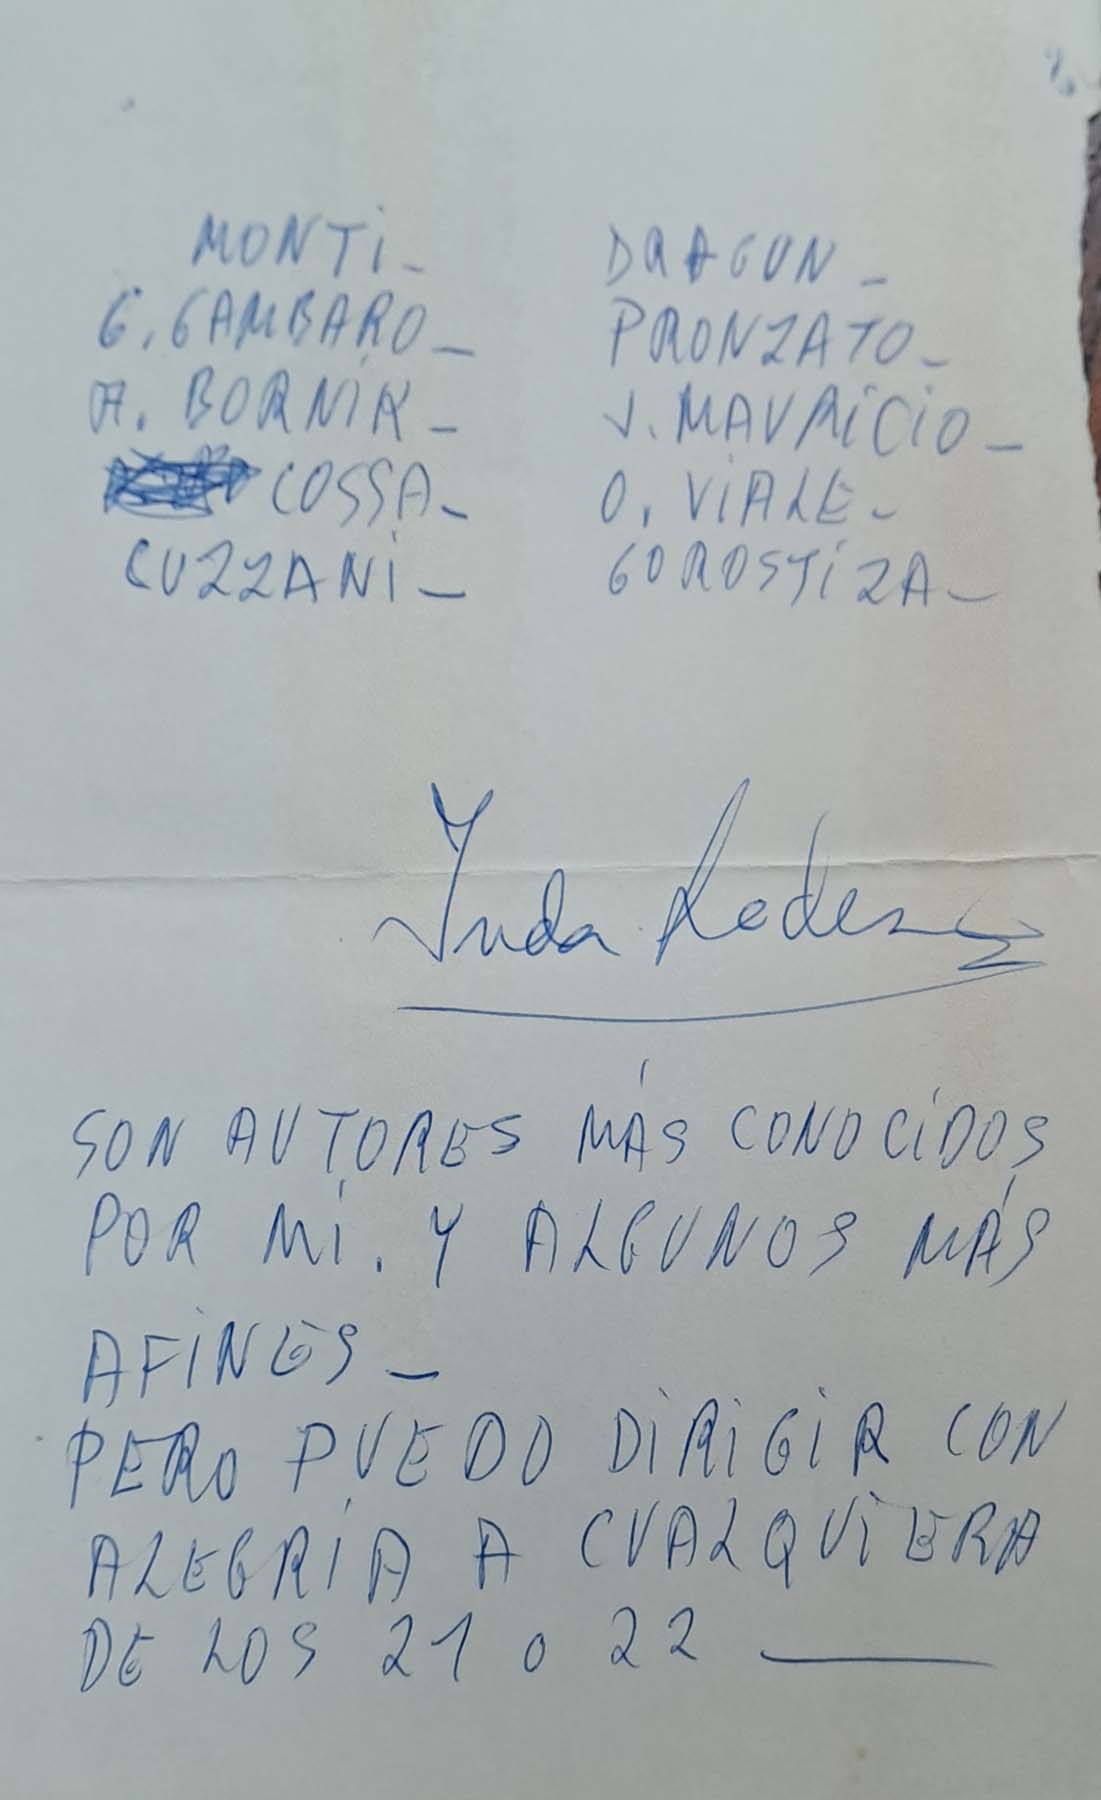 MONTI_
G. GAMBARO_
A. BORNIK_
COSSA_
CUZZANI_
DRAGUN_
PRONZATO_
J. MAURICIO_
O. VIALE_
GOROSTIZA_
SON AUTORES MÁS CONOCIDOS
POR MÍ. Y ALGUNOS MÁS
AFINES_
PERO PUEDO DIRIGIR CON
ALEGRÍA A CUALQUIERA
DE LOS 21 o 22 ____